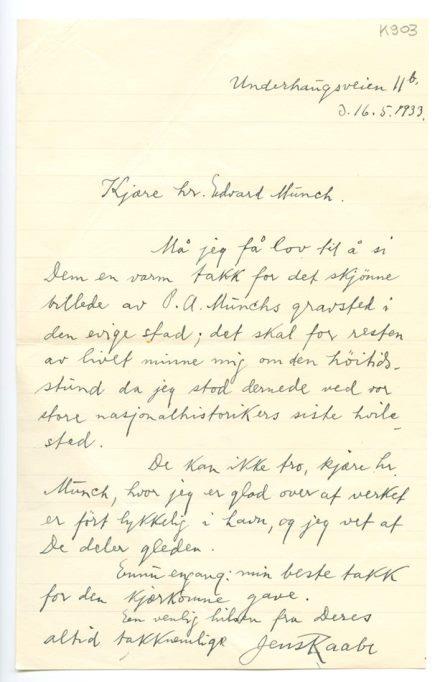 K903
Underhaugsveien 11b.
d. 16.5.1933.
Kjære hr. Edvard Munch.
Må jeg få lov til å si
Dem en varm takk for det skjønne
billede av P. A. Munchs gravsted i
den evige stad; det skal for resten
av livet minne mig om den höitids-
stund da jeg stod dernede ved vor
store nasjonalhistorikers siste hvile-
sted.
De kan ikke tro, kjære hr.
Munch, hvor jeg er glad over at verket
er fört lykkelig i havn, og jeg vet at
De deler gleden.
Ennu engang: min beste takk
for den kjærkomne gave.
En venlig hilsen fra Deres
altid takknemlige Jens Raabe